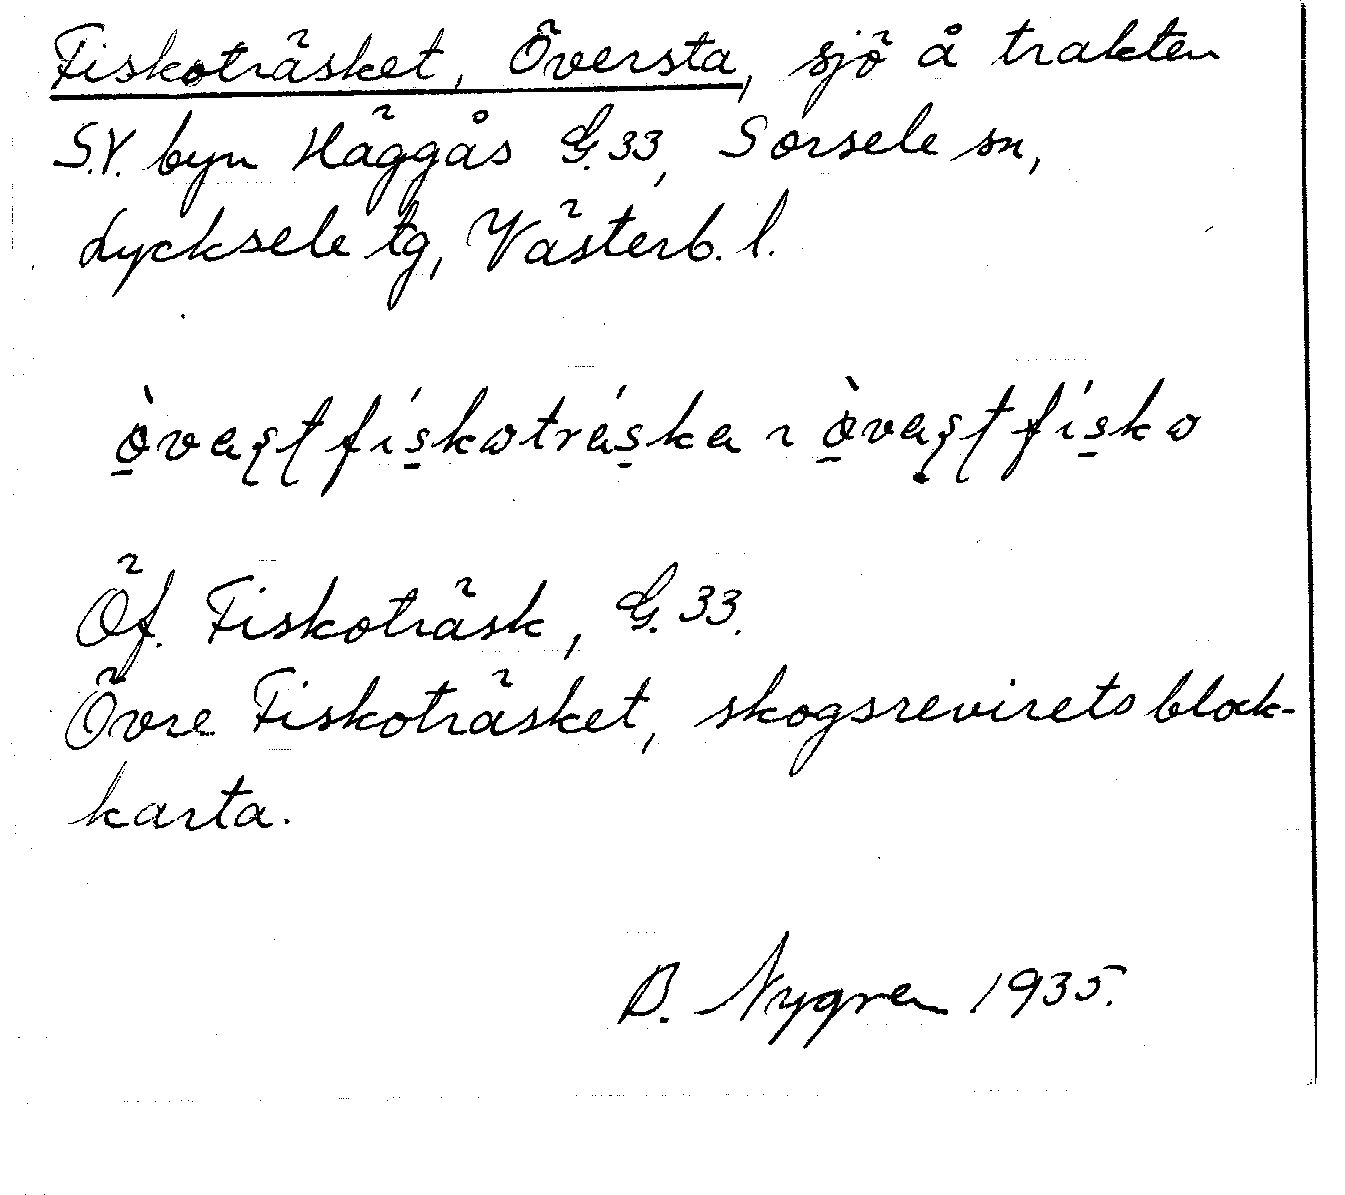 Fiskoträsket, Översta, sjö å trakten
S.V. byn Häggås G.33, Sorsele sn,
Lycksele tg, Västerb. l.
Öf. Fiskoträsk, G.33.
Övre Fiskoträsket, skogsrevirets block-
karta.
B. Nygren 1935.